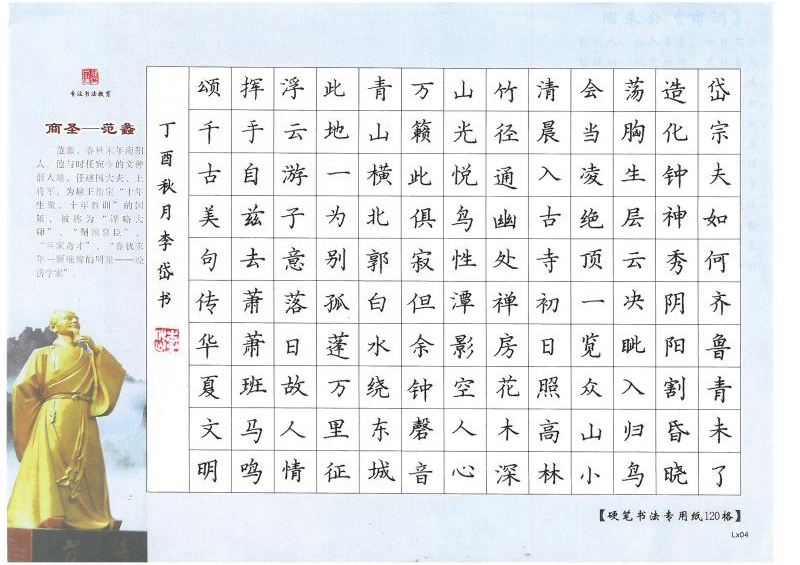 岱宗夫如何齐鲁青未了
造化钟神秀阴阳割昏晓
荡胸生层云决眦入归鸟
会当凌绝顶一览众山小
清晨入古寺初日照高林
竹径通幽处禅房花木深
山光悦鸟性潭影空人心
万籁此俱寂但余钟磬音
青山横北郭白水绕东城
此地一为别孤蓬万里征
浮云游子意落日故人情
挥手自兹去萧萧班马鸣
颂千古美句传华夏文明
丁酉秋月李岱书
专注书法教育
商圣—范蠡
范蠡，春秋末年南阳
人。他与时任宛令的文种
前人越，任越国大夫、上
将军，为越王指定“十年
生聚，十年教训”的国
策，被称为“谋略大
师”、
“兵家奇才”、“春秋末
年一颗璀璨的明星——经
济学家”。
【硬笔书法专用纸120格】
Lx04